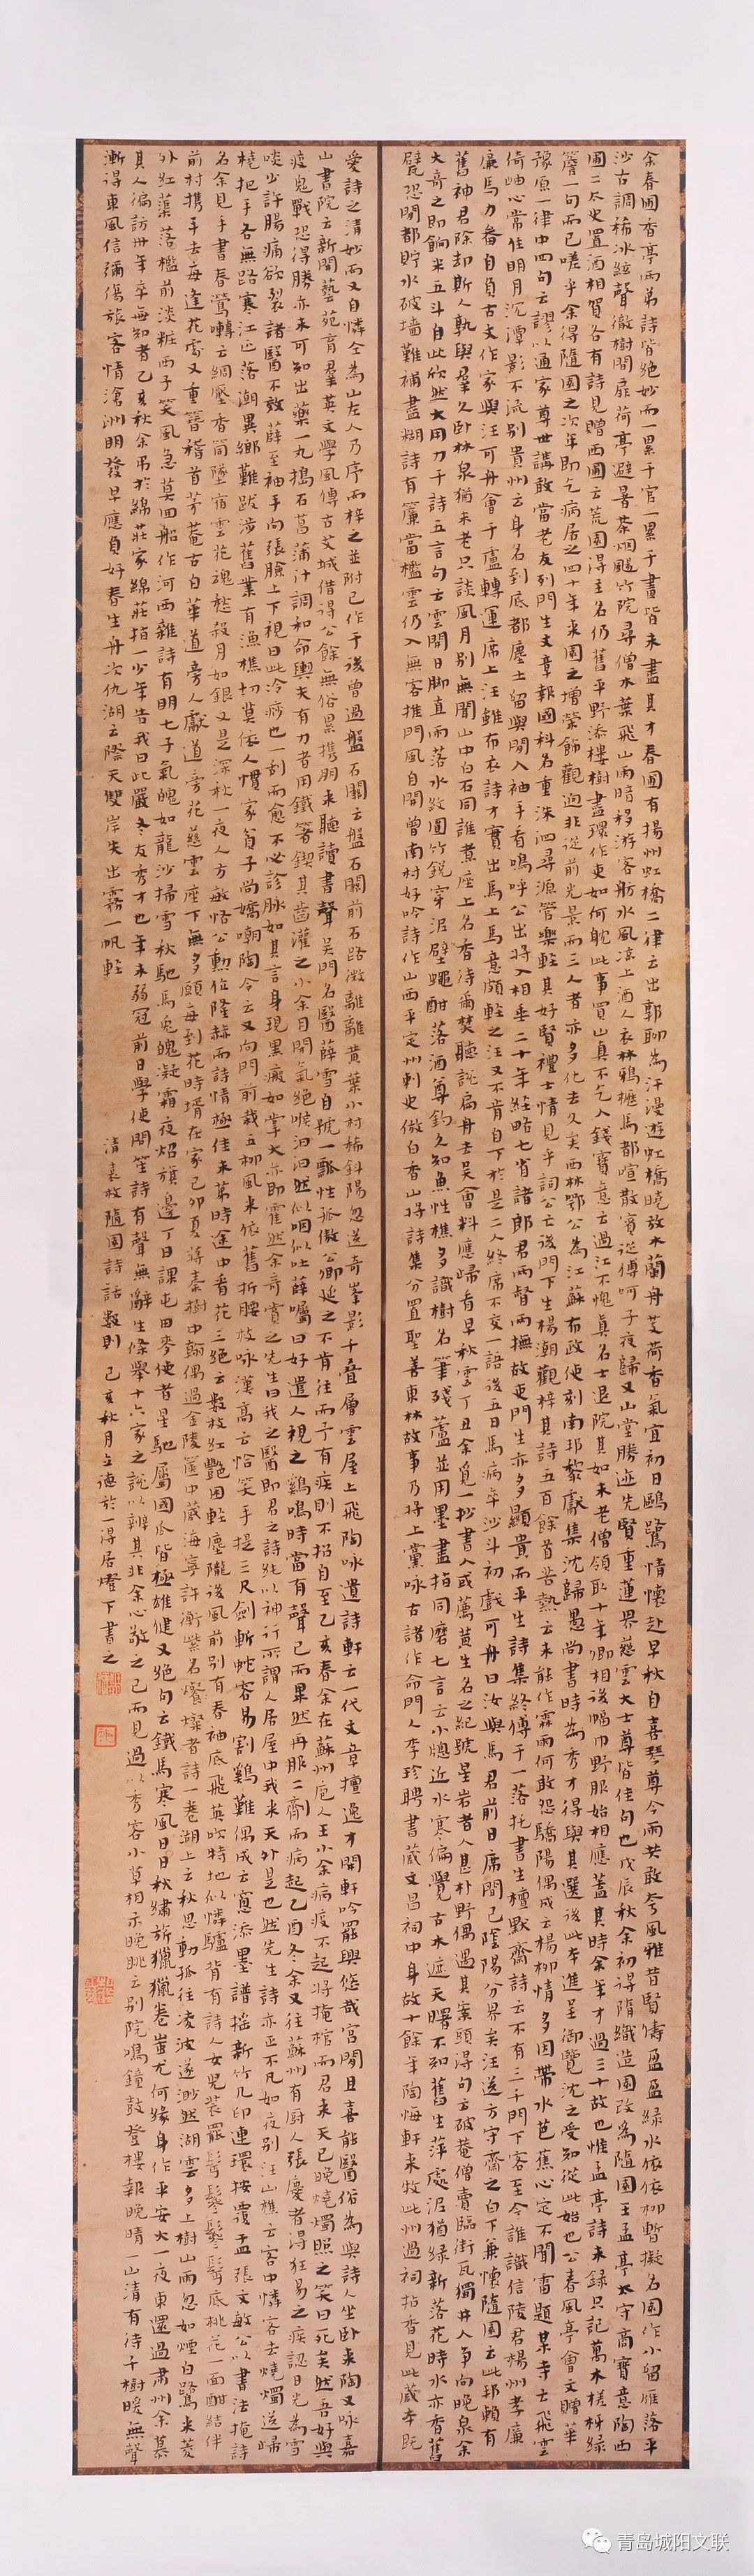 余春圃香亭兩弟詩皆絕妙而一累于官一累于畫皆未盡其才春圃有揚州虹橋二律云出郭聊為汗漫遊虹橋曉放木蘭舟芰荷香氣宜初日鷗鷺情懷赴早秋自喜琴尊今雨共敢夸風雅昔賢儔盈盈綠水依依柳暫擬名園作小留雁落平
沙古調稀冰絃聲徹樹間扉荷亭避暑茶烟颺竹院尋僧木葉飛山雨暗移游客舫水風涼上酒人衣林鴉櫪馬都喧散賓從傳呵子夜歸又山堂勝迹先賢重蓮界慈雲大士尊皆佳句也戊辰秋余初得隋織造園改為隨園王孟亭太守商寶意陶西
圃二太史置酒相賀各有詩見贈西圃云荒園得主名仍舊平野添樓樹盡環作吏如何耽此事買山真不乞人錢寶意云過江不愧真名士退院其如未老僧領取十年卿相後幅巾野服始相應蓋其時余年才過三十故也惟孟亭詩未錄只記萬木槎枒綠
簷一句而已嗟乎余得隨園之次年即乞病居之四十年來園之增榮飾觀迥非從前光景而三人者亦多化去久矣西林鄂公為江蘇布政使刻南邦黎獻集沈歸愚尚書時為秀才得與其選後此本進呈御覽沈之受知從此始也公春風亭會文贈華
豫原一律中四句云謬以通家尊世講敢當老友列門生文章報國科名重洙泗尋源管樂輕其好賢禮士情見乎詞公亡後門下生楊潮觀梓其詩五百餘首苦熱云未能作霖雨何敢怨驕陽偶成云楊柳情多因帶水芭蕉心定不聞雷題某寺云飛雲
倚岫心常住明月沉潭影不流別貴州云身名到底都塵土留與閒人袖手看鳴呼公出將入相垂二十年經略七省諸郎君兩督兩撫故吏門生亦多顯貴而平生詩集終傳于一落托書生檀默齋詩云不有三千門下客至今誰識信陵君楊州孝廉
廉馬力畚自負古文作家與汪可舟會于盧轉運席上汪雖布衣詩才實出馬上馬意頗輕之汪又不肯自下於是二人終席不交一語後五日馬病卒沙斗初戲可舟曰汝與馬君前日席間已陰陽分界矣汪送方守齋之白下兼懷隨園云此邦賴有
舊神君除却斯人孰與羣久臥林泉猶未老只談風月別無聞山中白石同誰煮座上名香待爾焚聽說扁舟去吳會料應歸看早秋雲丁丑余覓一抄書人或薦黃生名之紀號星岩者人甚朴野偶過其案頭得句云破菴僧賣臨街瓦獨井人爭向晚泉余
大奇之即餉米五斗自此欣然大用力于詩五言句云雲開日脚直雨落水紋圓竹銳穿泥壁蠅酣落酒尊釣久知魚性樵多識樹名筆殘蘆並用墨盡指同磨七言云小窻近水寒偏覺古木遮天曙不知舊生萍處泥猶綠新落花時水亦香舊
甓恐聞都貯水破墻難補盡糊詩有簾當檻雲仍入無客推門風自開曾南村好吟詩作山西平定州刺史倣白香山將詩集分置聖善東林故事乃將上黨咏古諸作命門人李珍聘書藏文昌祠中身故十餘年陶悔軒來牧此州過祠拈香見此藏本既
愛詩之清妙而又自憐仝為山左人乃序而梓之並附己作于後曾過盤石關云盤石關前石路微離離黃葉小村稀斜陽忽送奇峯影千疊層雲屋上飛陶咏遺詩軒云一代文章擅逸才開軒吟罷興悠哉宮閒且喜能醫俗為與詩人坐臥來陶又咏嘉
山書院云新開藝苑育羣英文學風傳古艾城借得公餘無俗累携朋來聽讀書聲吳門名醫薛雪自號一瓢性孤傲公卿延之不肯往而予有疾則不招自至乙亥春余在蘇州庖人王小余病疫不起將掩棺而君來天已晚燒燭照之笑曰死矣然吾好與
疫鬼戰恐得勝亦未可知出藥一丸搗石菖蒲汁調和命輿夫有力者用鐵箸鍥其齒灌之小余目閉氣絕喉汩汩然似咽似吐薛囑曰好遣人視之鷄鳴時當有聲已而果然再服二劑而病起乙酉冬余又往蘇州有厨人張慶者得狂易之疾認日光為雪
啖少許腸痛欲裂諸醫不效薛至袖手向張臉上下視曰此冷痧也一刮而愈不必診脉如其言身現黑瘢如掌大亦即霍然余奇賞之先生曰我之醫即君之詩純以神行所謂人居屋中我來天外是也然先生詩亦正不凡如夜別汪山樵云客中憐客去燒燭送歸
橈把手各無路寒江正落潮異鄉難跋涉舊業有漁樵切莫依人慣家貧子尚嬌嘲陶令云又向門前栽五柳風來依舊折腰枝咏漢高云恰笑手提三尺劍斬蛇容易割鷄難偶成云窻添墨譜摇新竹几印連環按覆盂張文敏公以書法掩詩
名余見手書春鶯囀云綢壓香筒墜宿雲花魂愁殺月如銀又是深秋一夜人方敏恪公勳位隆赫而詩情極佳未第時途中看花三絕云數枝紅艷困輕塵隴後風前別有春袖底飛英吹特地似憐驢背有詩人女兒裝罷鬢鬖鬖鬢底桃花一面酣結伴
前村携手去每逢花處又重簪稽首茅菴古白華道旁人獻道旁花慈雲座下無多願每到花時壻在家己卯夏蔣秦樹中翰偶過金陵篋中藏海寧許衡紫名燦者詩一卷湖上云秋思動孤往凌波遂渺然湖雲多上樹山雨忽如煙白鷺來菱
外紅蕖落檻前淡粧西子笑風急莫回船作河西雜詩有明七子氣魄如龍沙掃雪秋馳馬兔魄凝霜夜炤旗邊丁日課屯田麥使者星馳屬國瓜皆極雄健又絕句云鐵馬寒風日日秋繡旂獵獵卷蚩尤何緣身作平安火一夜東還過肅州余慕
其人徧訪卅年卒無知者乙亥秋余吊於綿莊家綿莊指一少年告我曰此嚴冬友秀才也年未弱冠前日學使問笙詩有聲無辭生條舉十六家之說以辨其非余心敬之已而見過以秀容小草相示晚眺云別院鳴鐘鼓登樓報晚晴一山清有待千樹暖無聲
漸得東風信彌傷旅客情滄洲明發早應負好春生舟次仇湖云際天雙岸失出霧一帆輕
清袁枚隨園詩話數則 己亥秋月立德於一得居燈下書之
青岛城阳文联